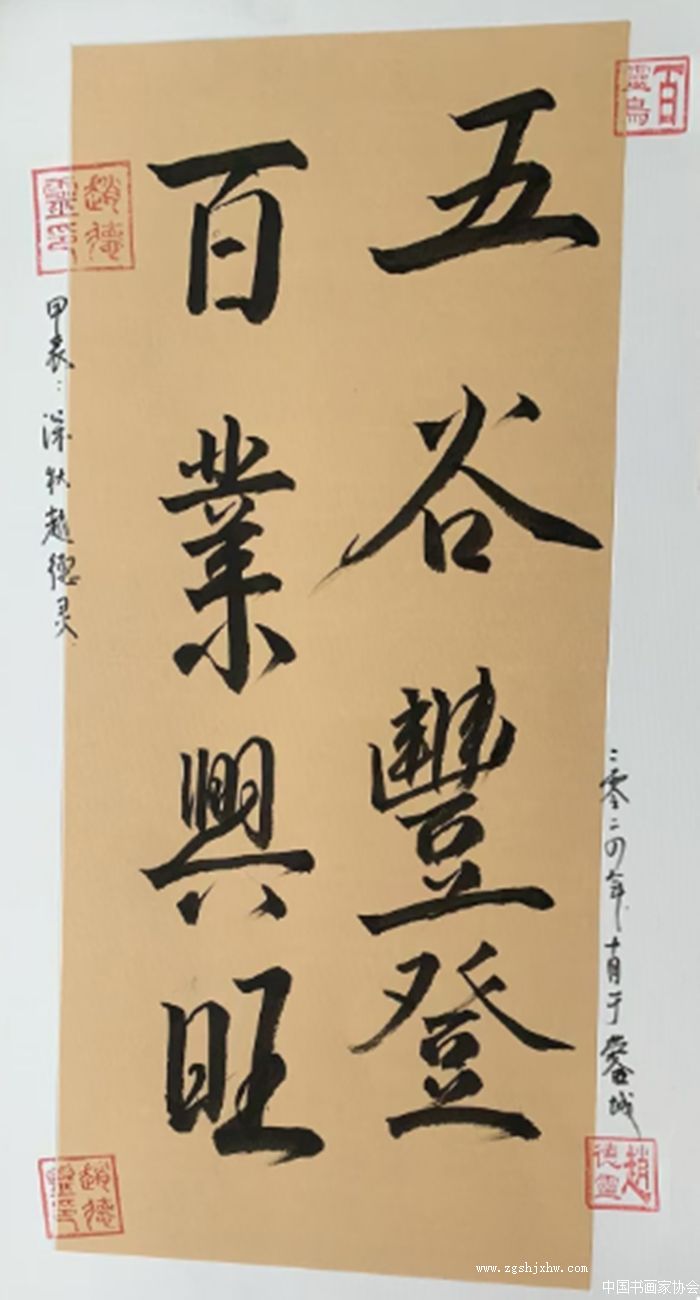 五谷豐登
百業興旺
二零二四年十月于
城
甲辰深秋趙德灵
百靈鳥
趙德靈印
趙德靈
趙德靈印
www.zgshjxhw.com
中国书画家协会